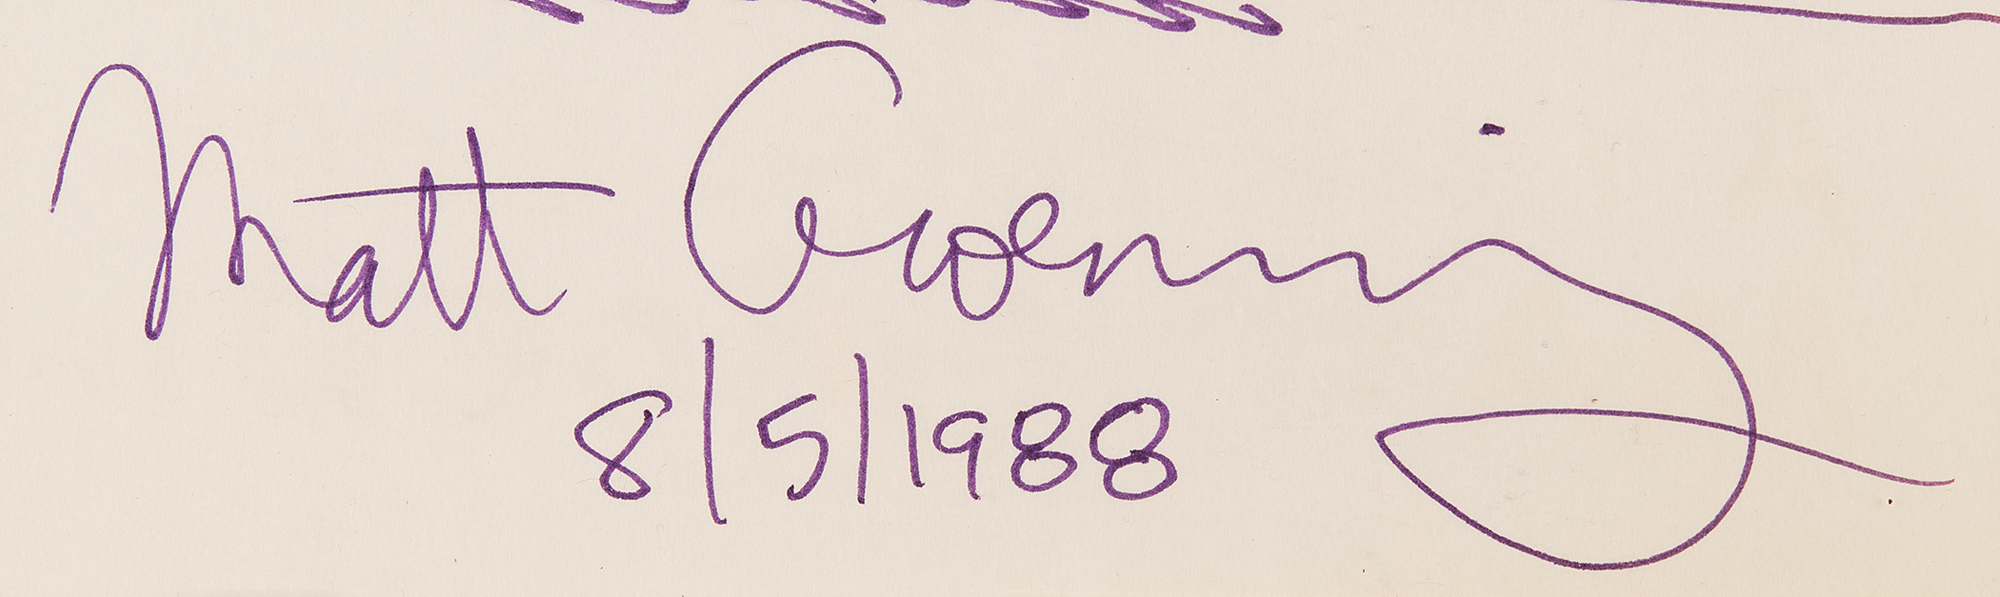 Matt Groening
8/5/1988